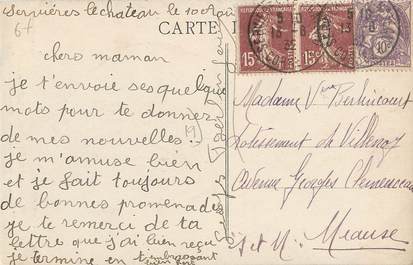 Servières le château le 10 août
67
CARTE
chers maman
je t'envoie ses quelques
mots pour te donner
de mes nouvelles
je m'amuse bien
et je fait toujours
de bonnes promenades
je te remerci de ta
lettre que j'ai bien reçu
je termine en t'embrassant
bien fort
15
15
10c
POSTES
Madame Vve Berlincourt
Lotissement de Villenoy
Avenue Georges Clemenceau
S et M. Meause